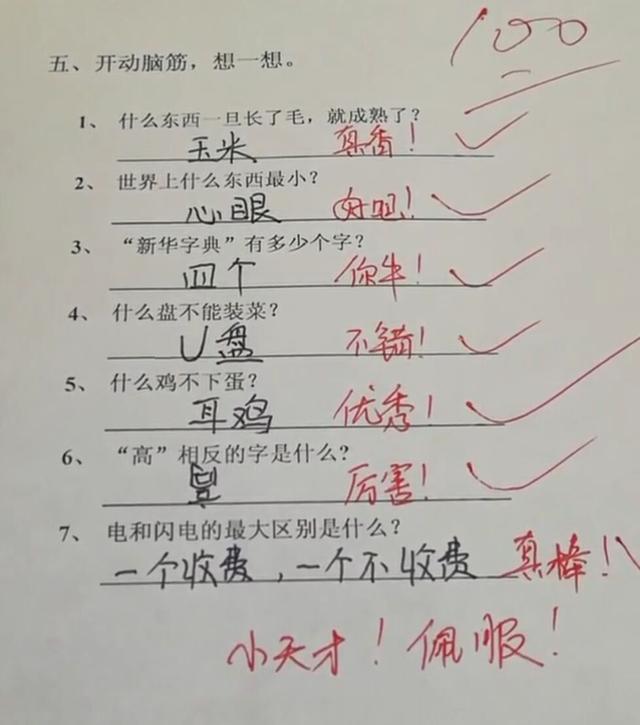 100
五、开动脑筋，想一想。
1、 什么东西一旦长了毛，就成熟了？
玉米 真香！
2、 世界上什么东西最小？
心眼 好吧！
3、 “新华字典”有多少个字？
四个 你牛！
4、 什么盘不能装菜？
U盘 不错！
5、 什么鸡不下蛋？
耳鸡 优秀！
6、 “高”相反的字是什么？
厉害！
7、 电和闪电的最大区别是什么？
一个收费，一个不收费 真棒！
小天才！佩服！